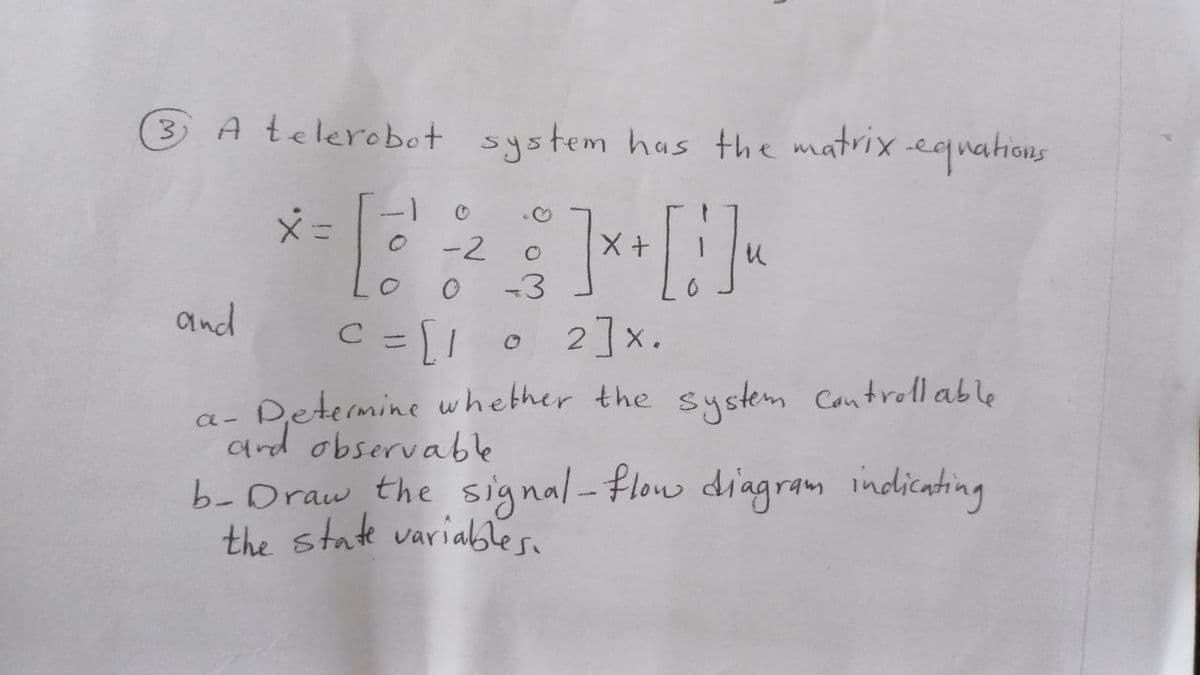 ③ A telerobot system has the matrix equations
ẋ = [ -1 0 0
0 -2 0
0 0 -3 ] x + [ 1
1
0 ] u
and c = [1 0 2] x.
a- Determine whether the system controllable
and observable
b- Draw the signal-flow diagram indicating
the state variables.